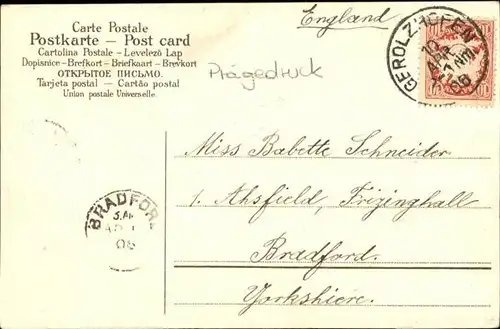 Carte Postale
Postkarte – Post card
Cartolina Postale – Levelező Lap
Dopisnice – Brefkort – Briefkaart – Brevkort
ОТКРЫТОЕ ПИСЬМО.
Tarjeta postal – Cartão postal
Union postale Universelle.
England
Prägedruck
GEROLZHOFEN
10
APR
06
10
10
BRADFOR
06
Miss Babette Schneider
1. Ahsfield, Frizinghall
Bradford.
Yorkshiere.